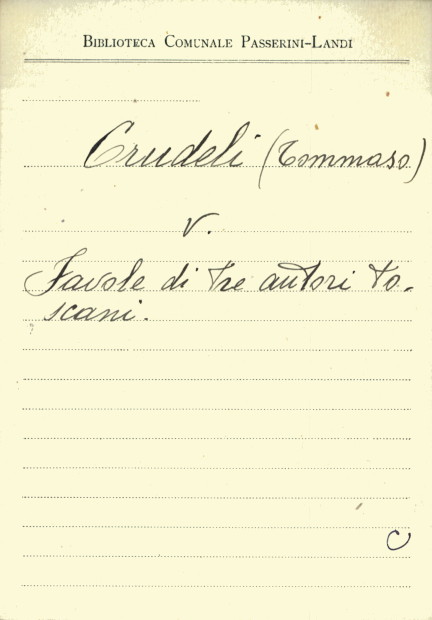 BIBLIOTECA COMUNALE PASSERINI-LANDI
Crudeli (Tommaso)
v.
Favole di tre autori to-
scani.
C